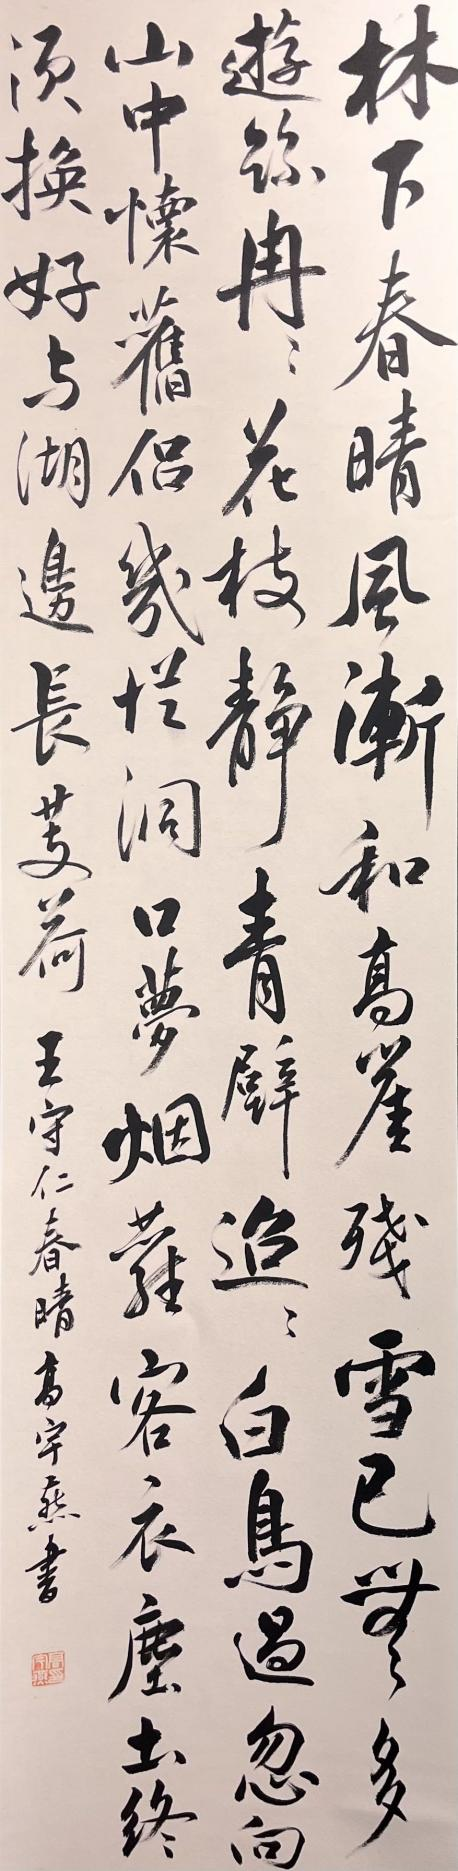 林下春晴風漸和高崖残雪已無多
遊絲冉〻花枝靜青壁迢〻白鳥過忽向
山中懷舊侶幾從洞口夢烟蘿客衣塵土終
須換好与湖邊長芰荷 王守仁春晴 高宇燕書